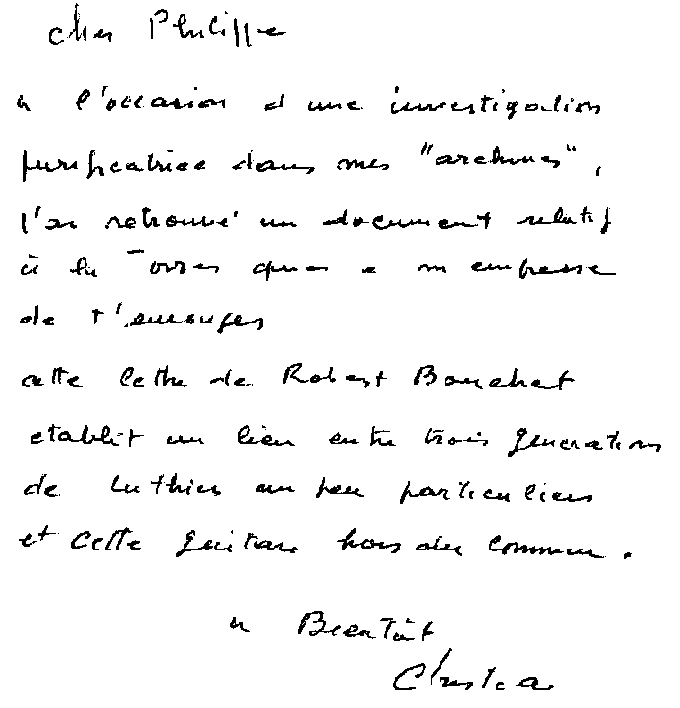 cher Philippe
à l'occasion d'une investigation
purificatrice dans mes "archives",
j'ai retrouvé un document relatif
à la Torres que je m'empresse
de t'envoyer
cette lettre de Robert Bouchet
etablit un lien entre trois générations
de luthiers un peu particuliers
et cette guitare hors du commun.
à Bientôt